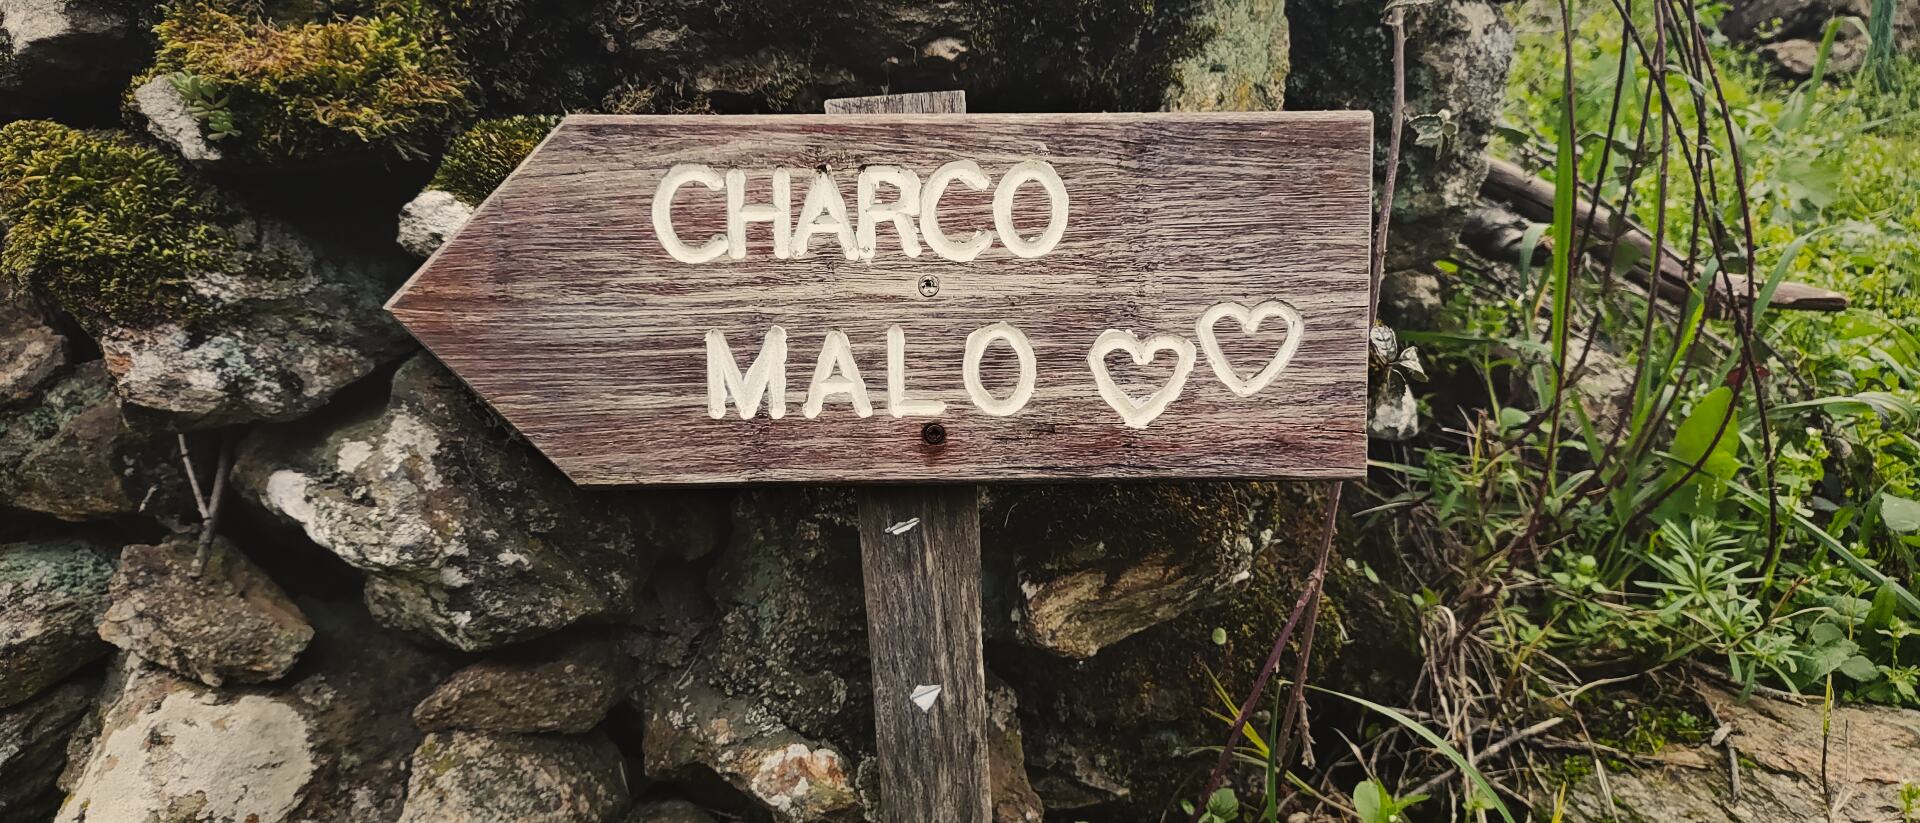 CHARCO
MALO ♡♡